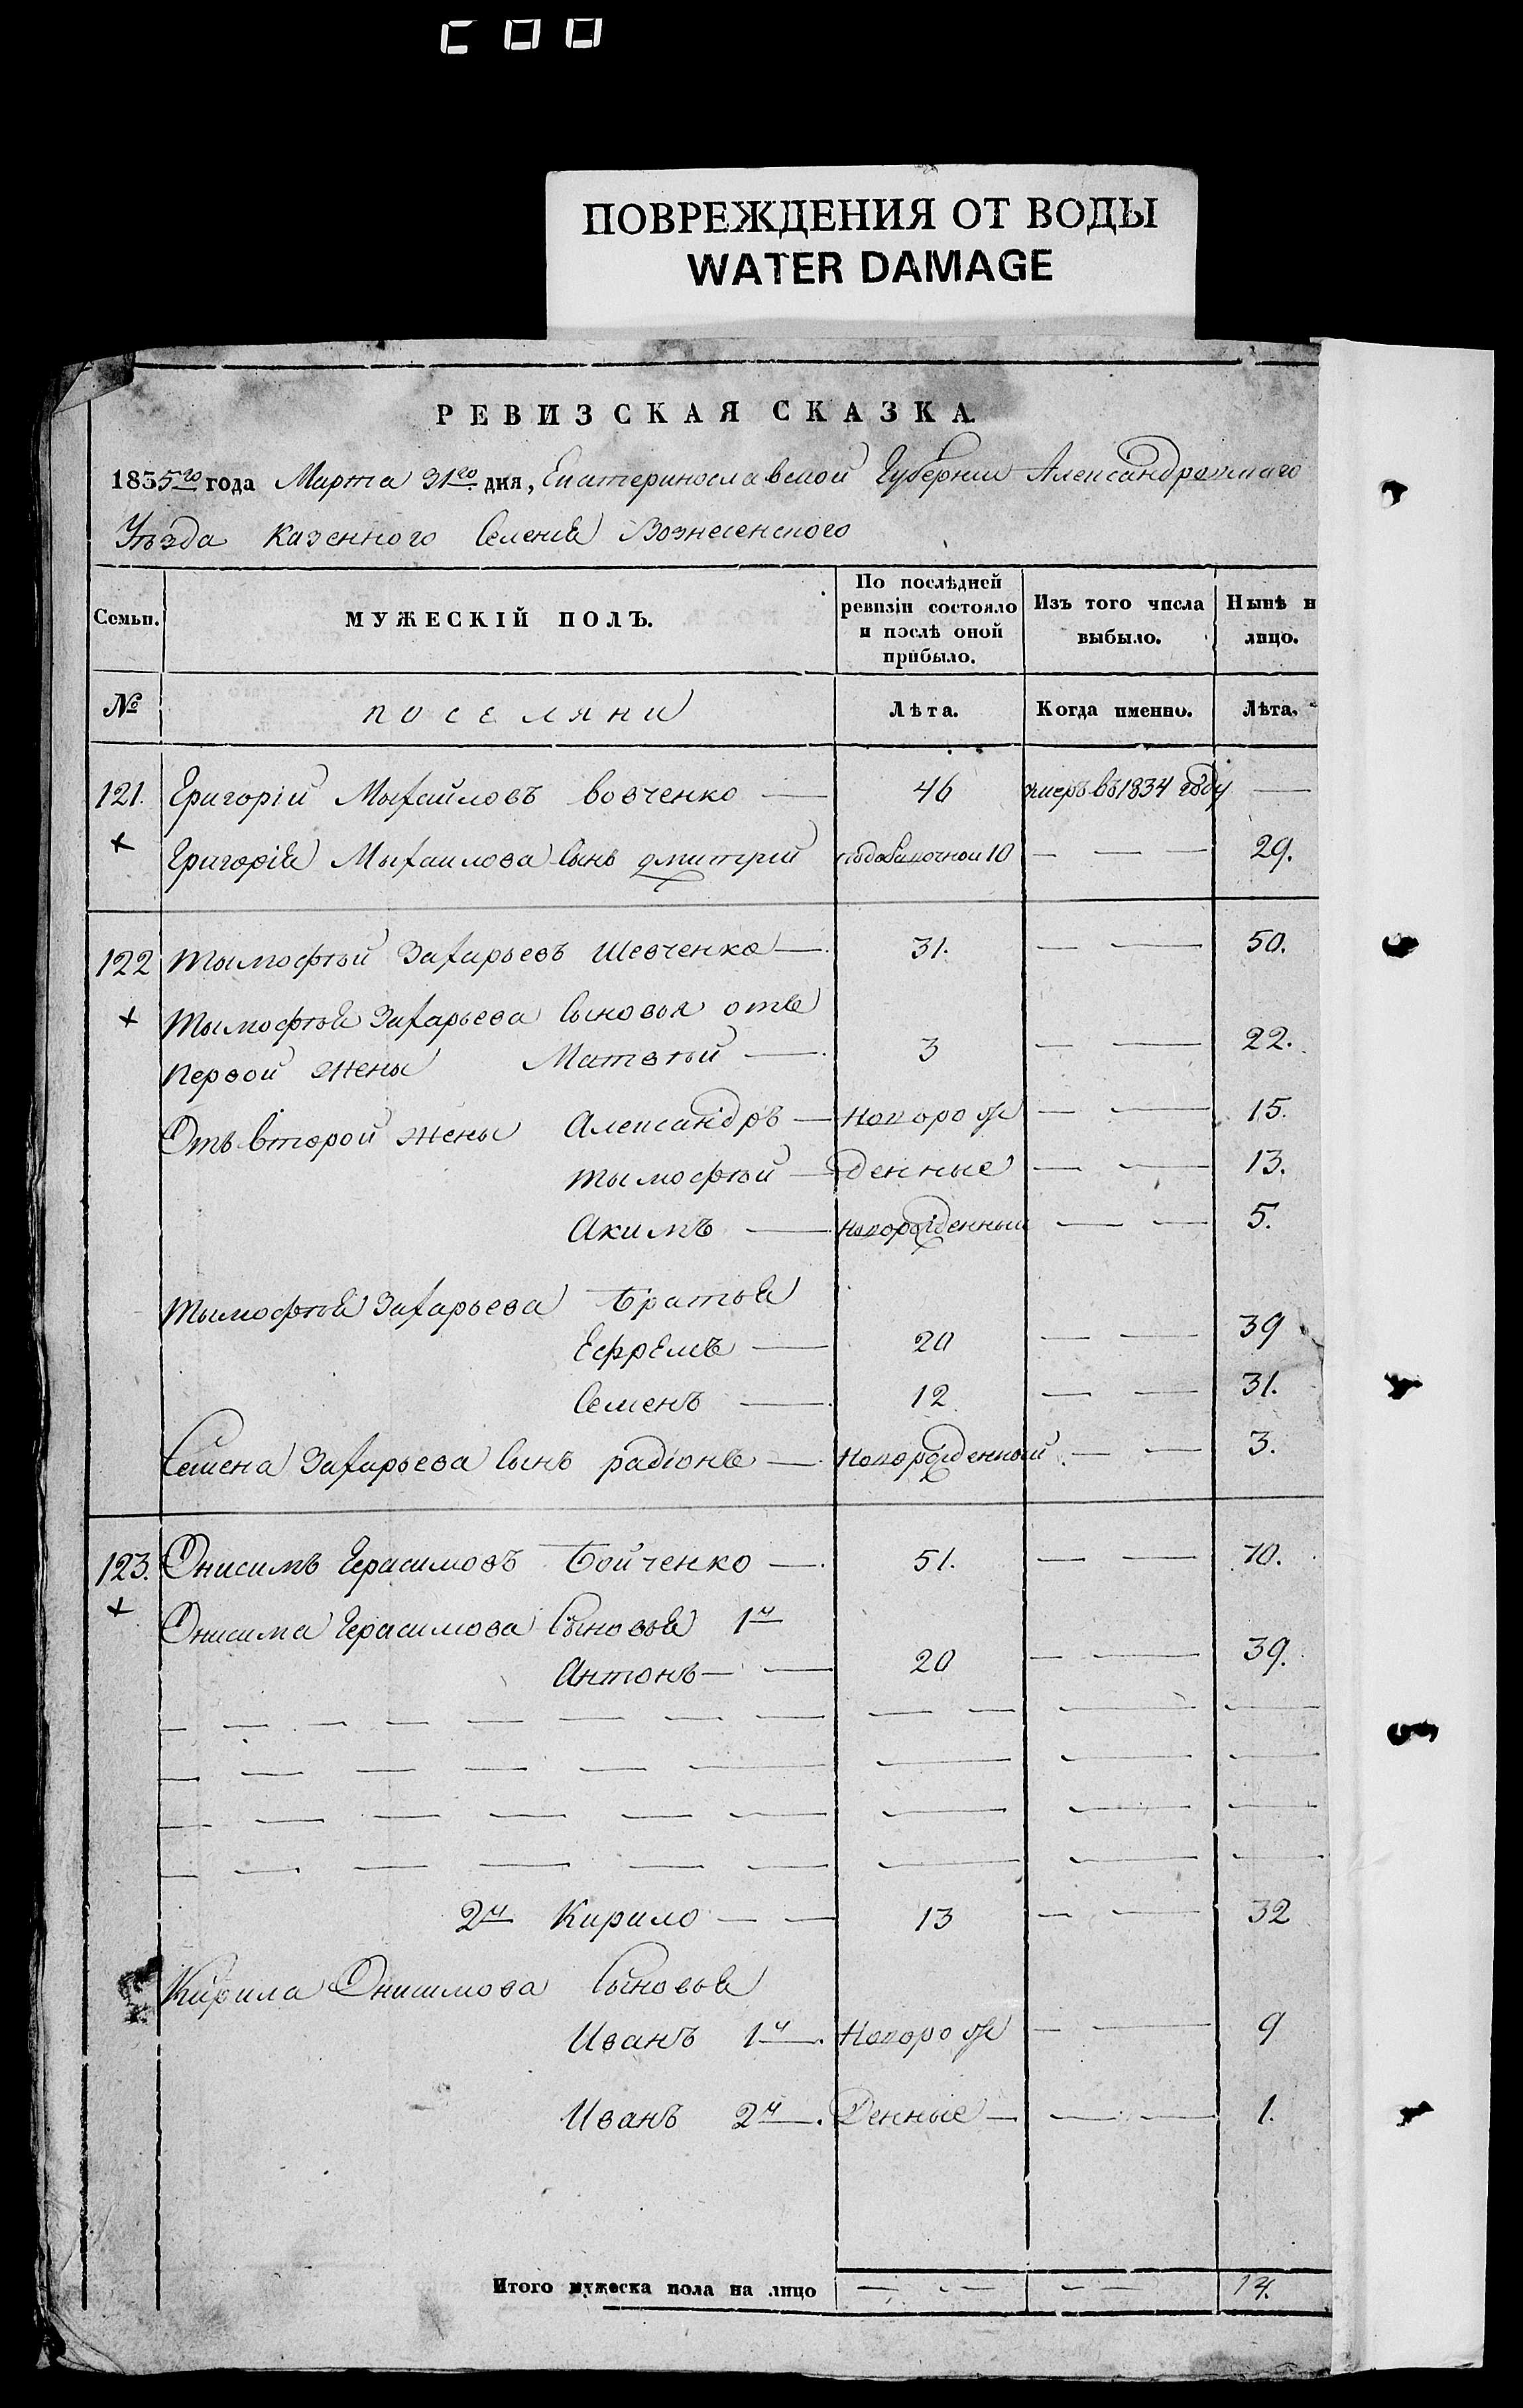 ПОВРЕЖДЕНИЯ ОТ ВОДЫ
WATER DAMAGE
РЕВИЗСКАЯ СКАЗКА
1835го года Марта 31го дня, Екатеринославской Губернии Александровскаго
Уѣзда Казенного Селенія Вознесенского
Семьи. МУЖЕСКІЙ ПОЛЪ. По послѣдней ревизіи состояло и послѣ оной прибыло. Изъ того числа выбыло. Нынѣ н лицо.
№ поселяни Лѣта. Когда именно. Лѣта.
121. Григорій Мыхайловъ вовченко — 46 умеръ въ 1834 году —
Григорія Мыхаилова Сынъ дмитрій 10 — — — 29.
122 тымофѣй Захарьевъ Шевченко — 31. — — 50.
Тымофѣя Захарьева Сыновья отъ
первой жены Матвѣй — 3 — — 22.
Отъ второй жены Александръ — Новорож — — 15.
тымофѣй — денные — — 13.
Акимъ — новорожденный — — 5.
Тымофѣя Захарьева братья
ЕфрЕмъ — 20 — — 39
Семенъ — 12 — — 31.
Семена Захарьева Сынъ радіонъ — Новорожденный — — 3.
123. Онисимъ Герасимовъ Бойченко — 51. — — 70.
Онисима Герасимова Сыновья 1й
Антонъ — — 20 — — 39.
2й Кирило — — 13 — — 32
Кирила Онисимова Сыновья
Иванъ 1й — Новорож — — 9
Иванъ 2й — Денные — — — 1.
Итого мужеска пола на лицо — — — — 14.